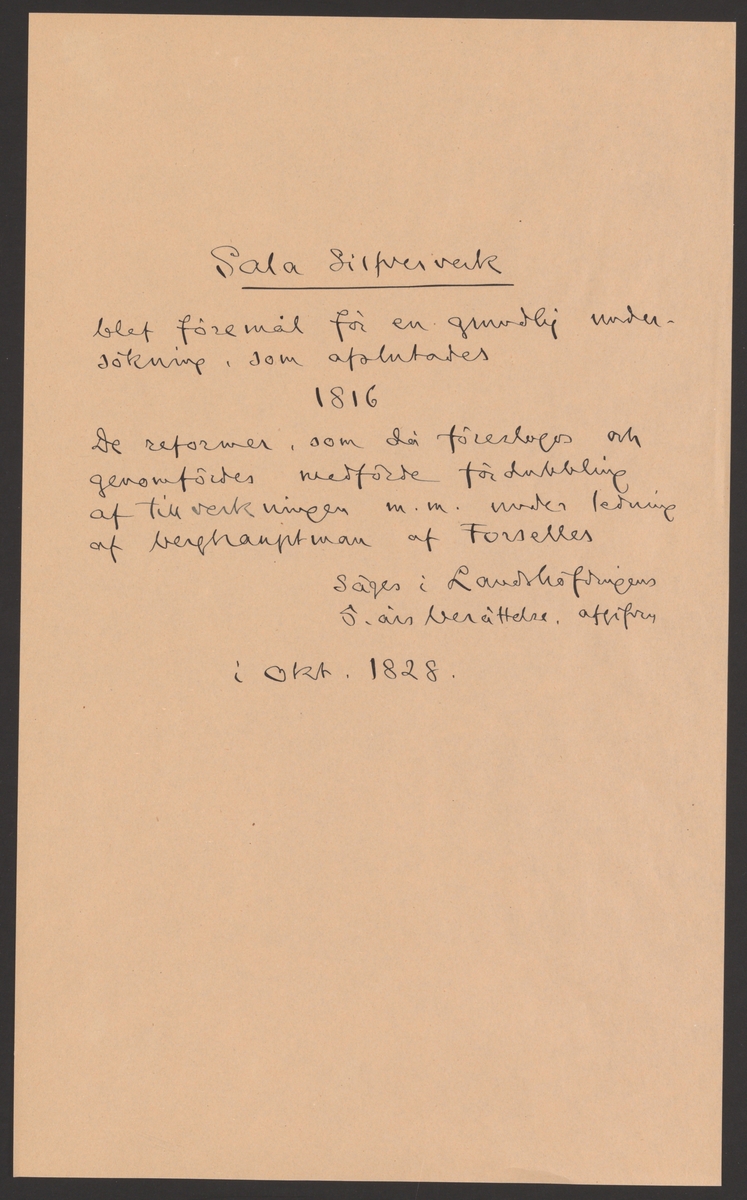 Sala Silfververk
blef föremål för en grundlig under-
sökning, som afslutades
1816
De reformer, som då föreslogos och
genomfördes medförde fördubbling
af tillverkningen m.m. under ledning
af berghauptman af Forselles
Säges i Landshöfdingens
5. års berättelse, afgifven
i Okt. 1828.